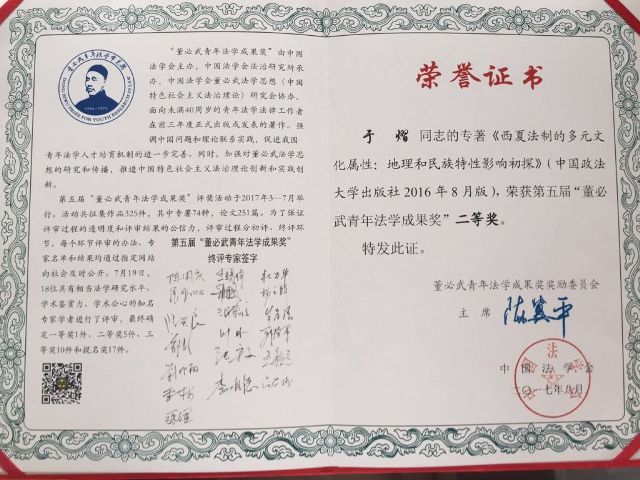 董必武青年法学成果奖
DONG BIWU PRIZES FOR YOUTH RESEARCH IN LAW
1886-1975
“董必武青年法学成果奖”由中
国法学会主办，中国法学会法治研究所承
办，中国法学会董必武法学思想（中国
特色社会主义法治理论）研究会协办。
面向未满40周岁的青年法学法律工作者
在前三年度正式出版或发表的著作。强
调中国问题和理论联系实践，促进我国
青年法学人才培育机制的进一步完善。同时，加强对董必武法学思
想的研究和传播，推进中国特色社会主义法治理论创新和实践创
新。
第五届“董必武青年法学成果奖”评奖活动于2017年3—7月举
行。活动共征集作品325件，其中专著74种，论文251篇。为了保证
评审过程的透明度和评审结果的公信力，评审过程分初评、终评环
节。每个环节评审的办法、专
家名单和结果均通过指定网站
向社会及时公开。7月19日，
18位具有相当法学研究水平、
学术鉴赏力、学术公心的知名
专家学者进行了评审，最终确
定一等奖1件、二等奖5件、三
等奖10件和提名奖17件。
第五届“董必武青年法学成果奖”
终评专家签字
荣誉证书
于熠 同志的专著《西夏法制的多元文
化属性：地理和民族特性影响初探》（中国政法
大学出版社2016年8月版），荣获第五届“董必
武青年法学成果奖”二等奖。
特发此证。
董必武青年法学成果奖奖励委员会
主 席 陈冀平
中国法学会
二〇一七年八月